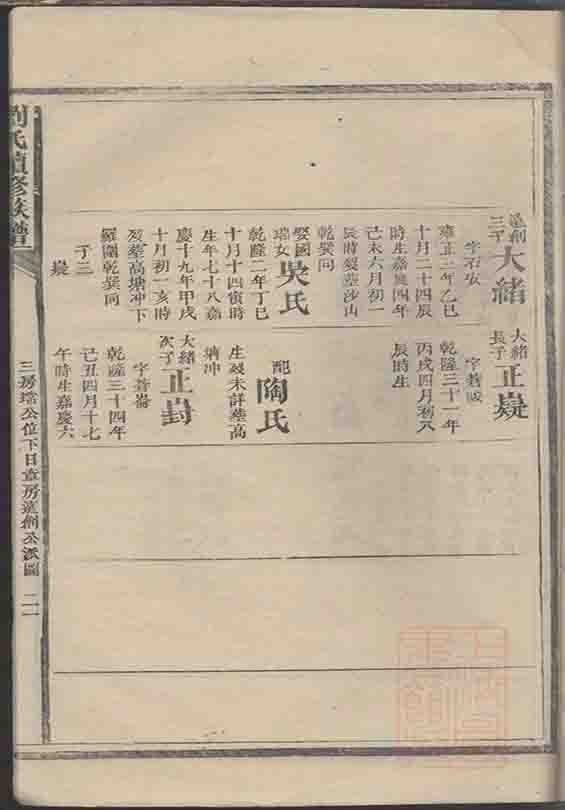 劉氏續修族譜
三子
大緒
字石友
雍正三年乙巳
十月二十四辰
時生嘉慶四年
己未六月初一
辰時歿塟沙山
乾巽向
娶國
瑞女
吳氏
乾隆二年丁巳
十月十四寅時
生年七十八嘉
慶十九年甲戌
十月初一亥時
歿塟高塘冲下
羅圍乾巽向
子三
大緒
長子
正嶷
乾隆三十一年
丙戌四月初八
辰時生
配
陶氏
生歿未詳塟高
塘冲
大緒
次子
正崶
字蒼崙
乾隆三十四年
己丑四月十七
午時生嘉慶六
三房 公位下日章房 公派圖
二一